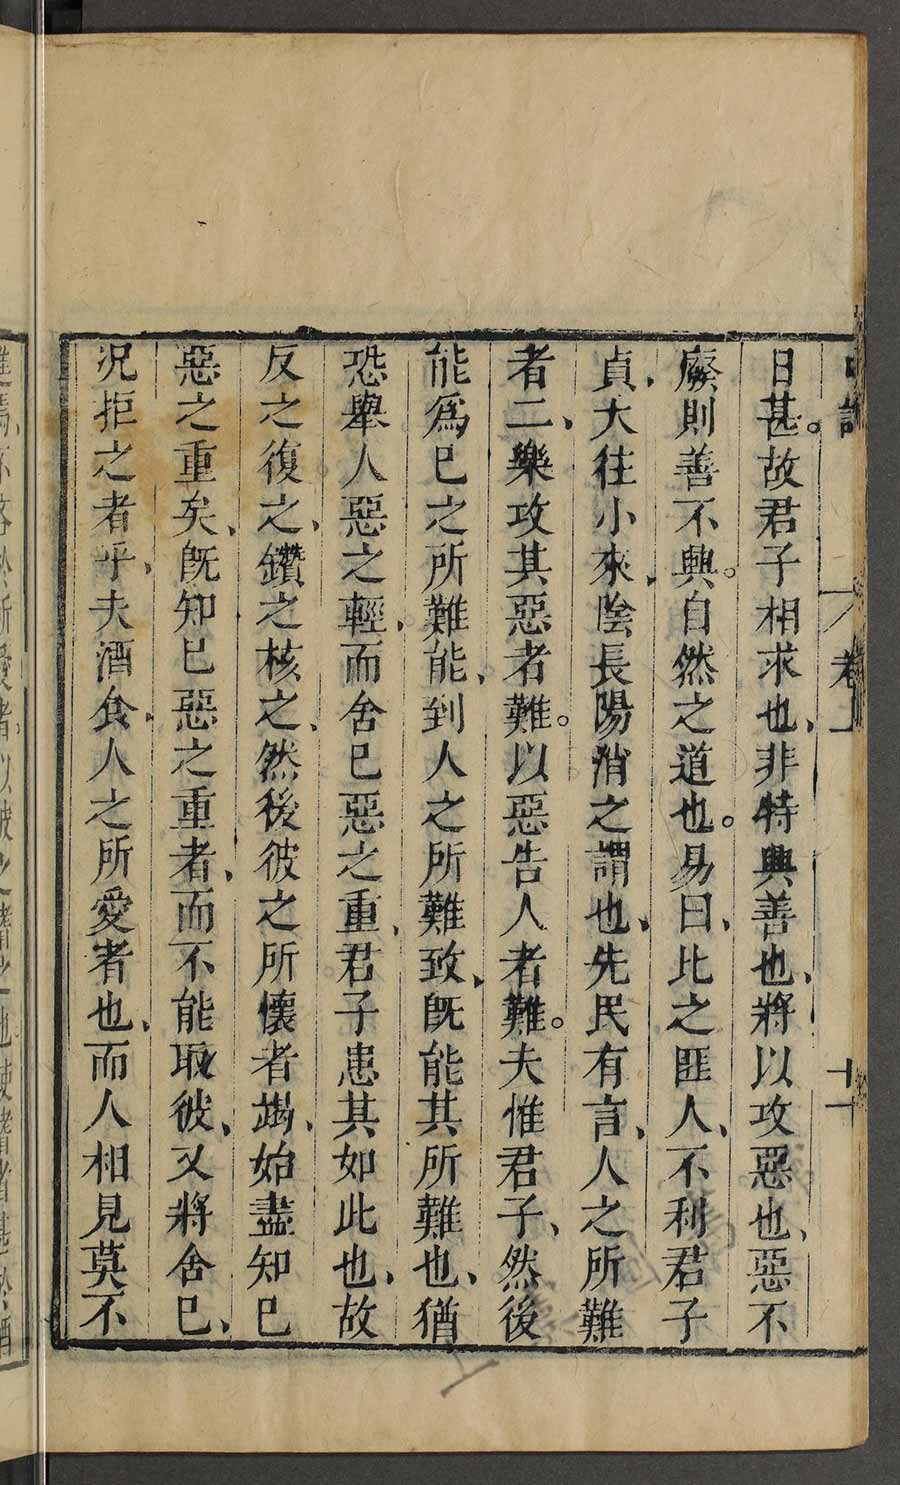 中論 卷上 十一
日甚。故君子相求也、非特興善也、將以攻惡也、惡不
廢則善不興。自然之道也。易曰、比之匪人、不利君子
貞、大往小來、陰長陽消之謂也、先民有言、人之所難
者二、樂攻其惡者難。以惡告人者難。夫惟君子、然後
能爲已之所難能、到人之所難致、旣能其所難也、猶
恐舉人惡之輕、而舍已惡之重、君子患其如此也、故
反之復之、鑽之核之、然後彼之所懷者竭、始盡知已
惡之重矣、旣知已惡之重者、而不能取彼、又將舍已、
况拒之者乎、夫酒食、人之所愛者也、而人相見莫不